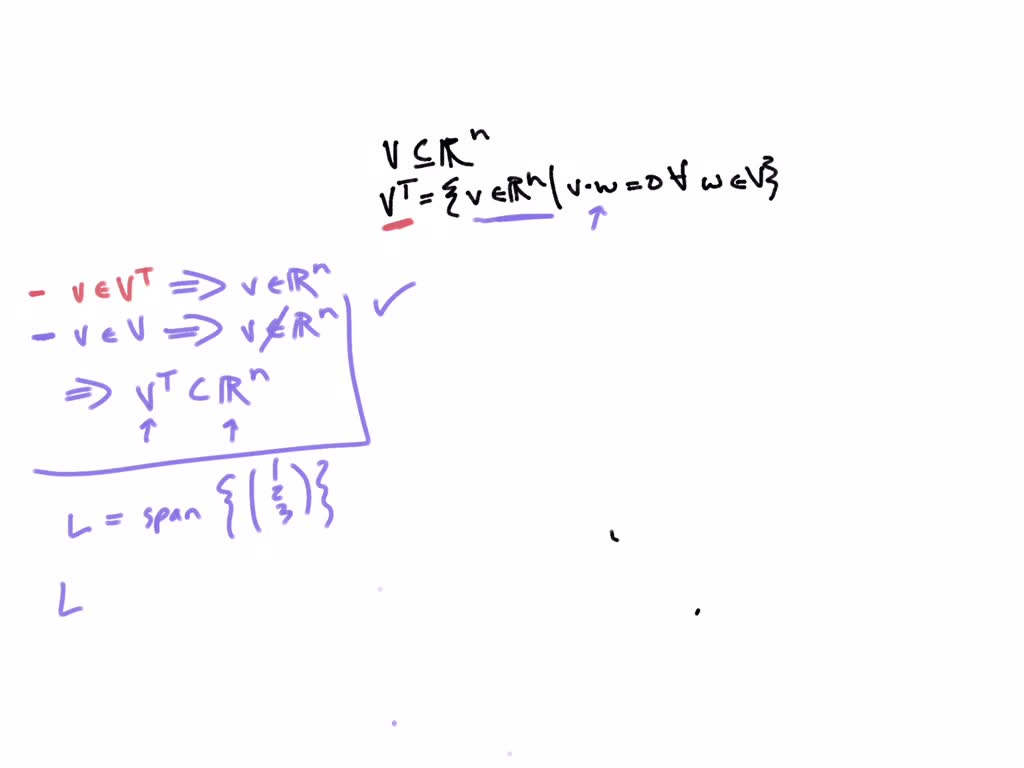 V ⊆ ℝⁿ
Vᵀ = {v ∈ ℝⁿ | v · w = 0 ∀ w ∈ V}
- v ∈ Vᵀ ⟹ v ∈ ℝⁿ
- v ∈ V ⟹ v ∉ ℝⁿ ✓
⟹ Vᵀ ⊂ ℝⁿ
↑ ↑
L = span {(1 2 3)}
L